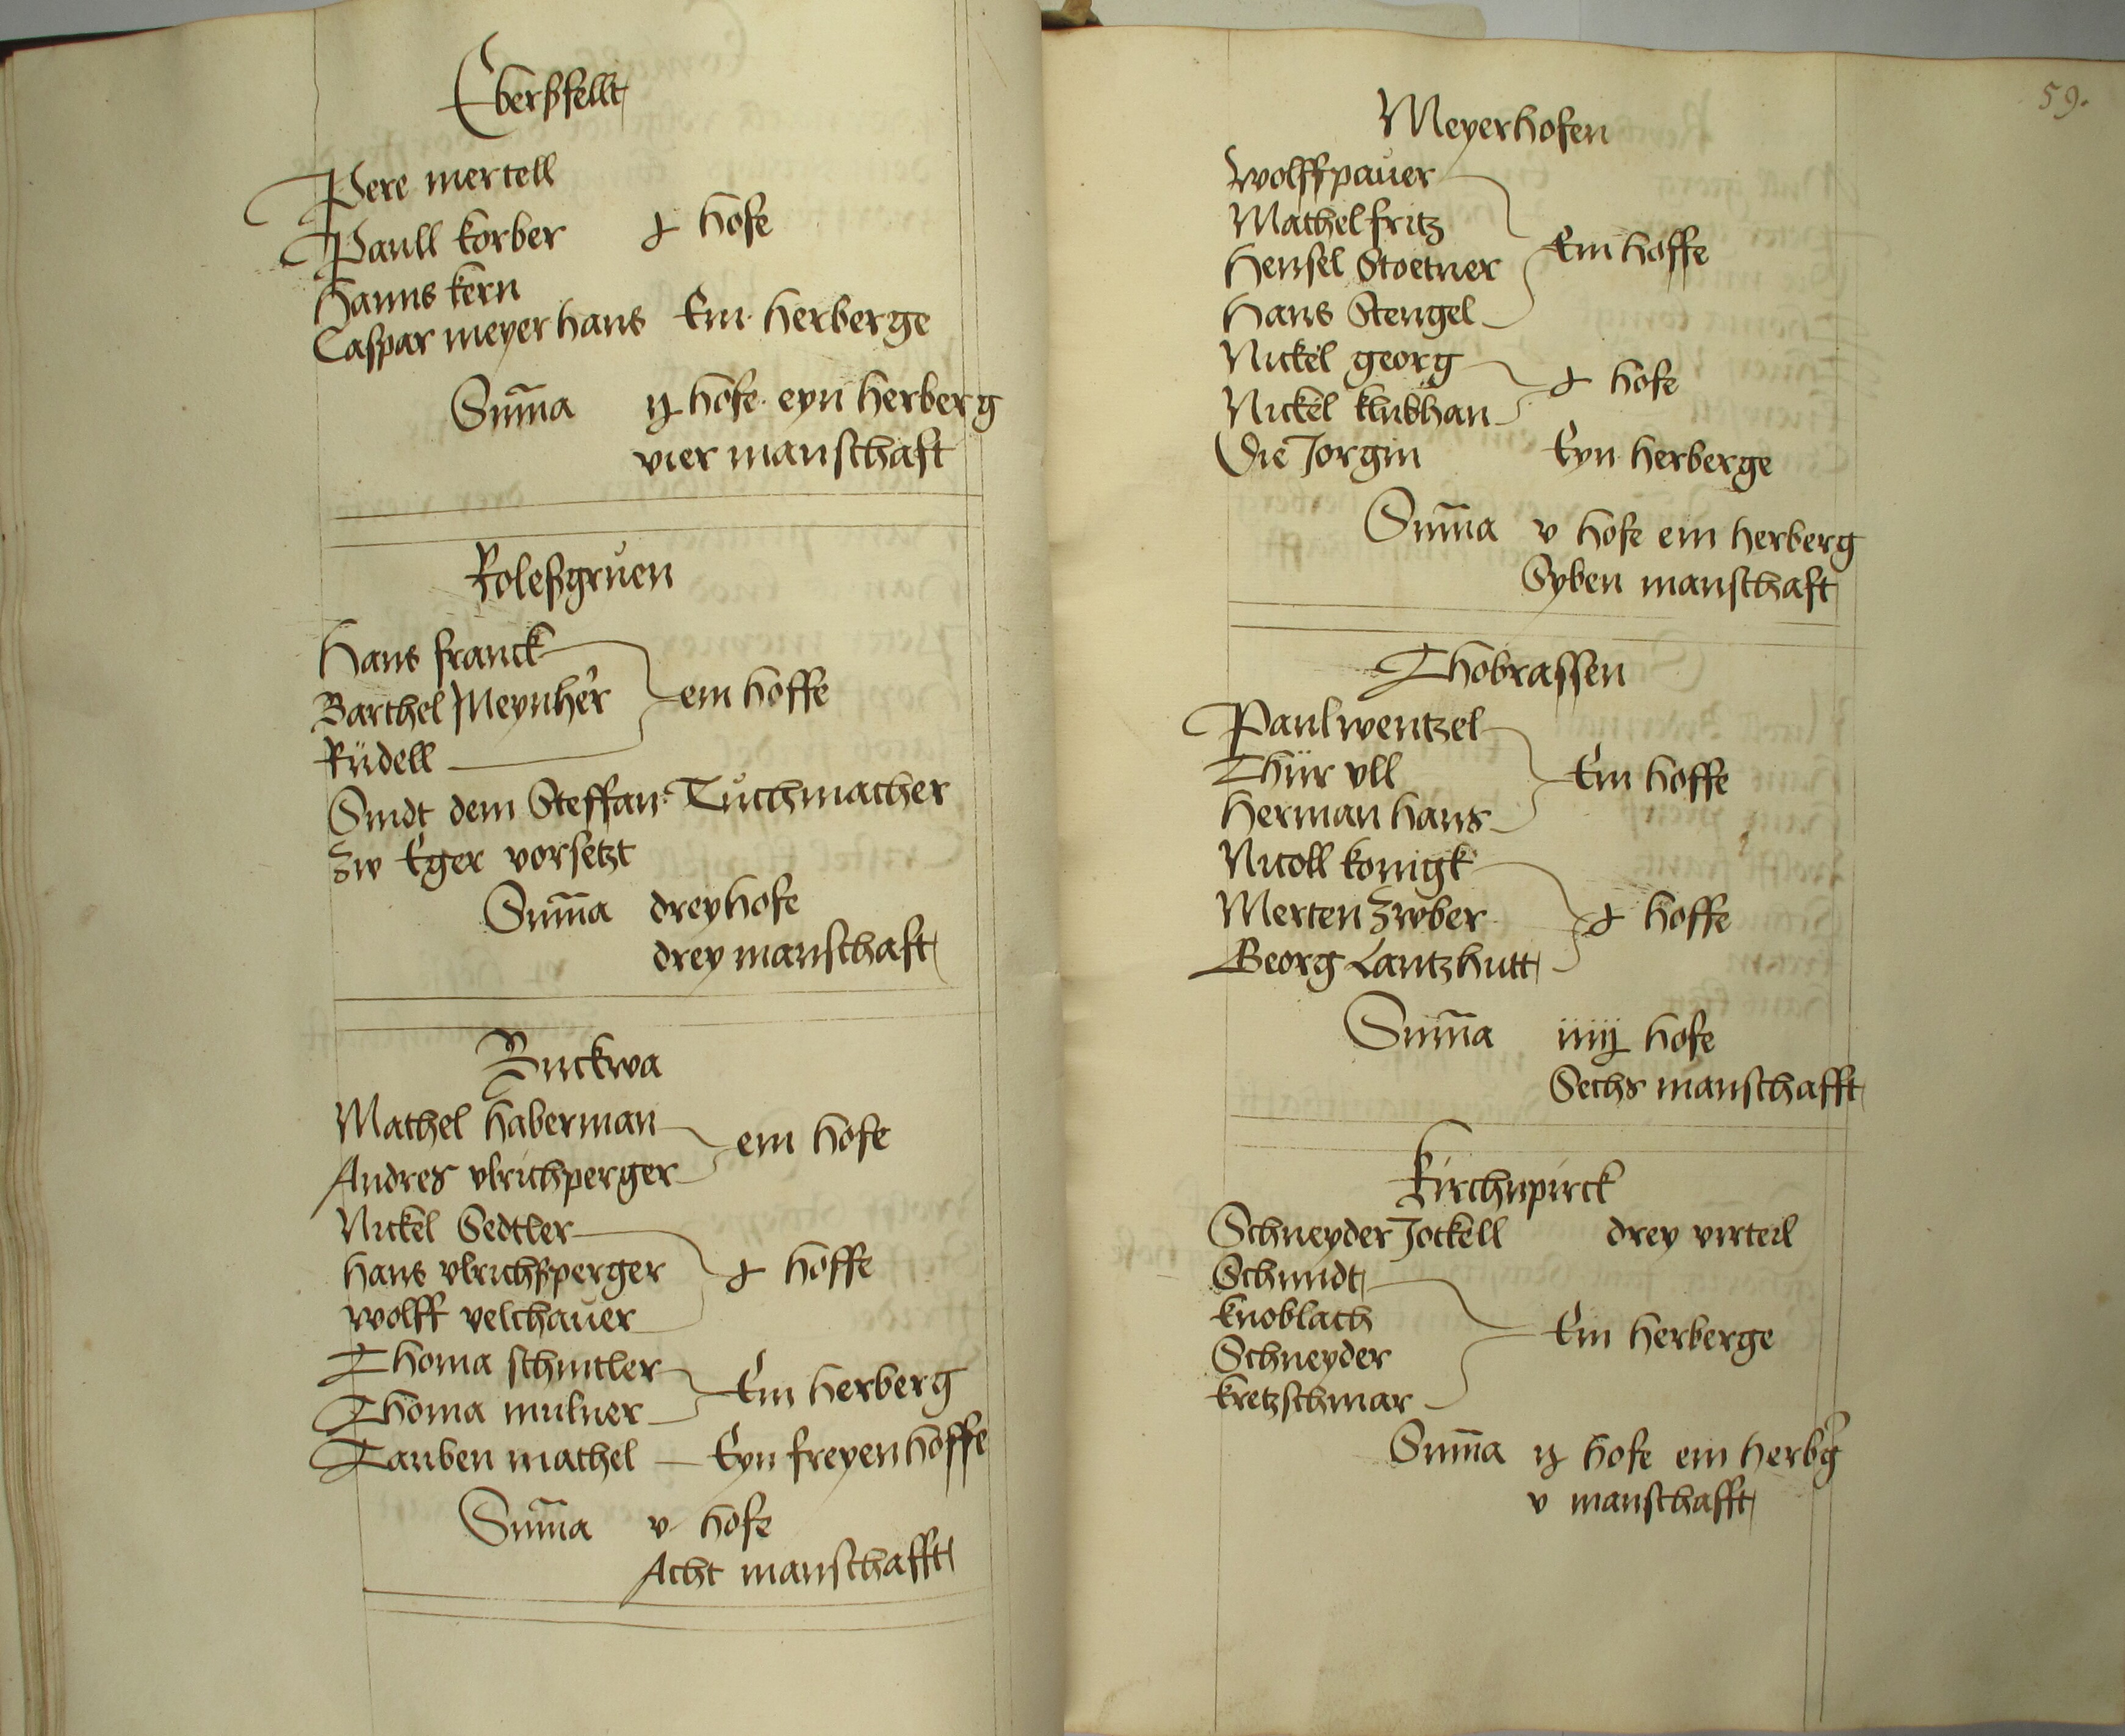 Eberßfellt
Pere mertell
Paull korber ɟ hofe
Hanns kern
Caspar meyer hans Ein herberge
Sum̄a ij hofe eyn herberg
vier manschaft
Roleßgruen
Hans franck
Barthel Meynher ein hoffe
Rüdell
Sindt dem Steffan Tuchmacher
zw Eger vorsetzt
Sum̄a drey hofe
drey manschaft
Buckwa
Mathel haberman ein hofe
Andres vlrichperger
Nickel Sedtler
hans vlrichsperger ɟ hoffe
wolff velchauer
Thoma schmtler Ein herberg
Thoma mulner
Tauben mathel Eyn freyen hoffe
Sum̄a v hofe
Acht manschafft
59.
Meyerhofen
Wolff pauer
Mathel fritz Ein hoffe
Hensel Stoetner
Hans Stengel
Nickel georg ɟ hofe
Nickel klubhan
Die Jorgin Eyn herberge
Sum̄a v hofe ein herberg
Syben manschaft
Thobrassen
Paul wentzel
Thür vll Ein hoffe
Herman hans
Nicoll konigk
Merten Zwber ɟ hoffe
Georg Lantzhutt
Sum̄a iiij hofe
Sechs manschafft
Kirchnpirck
Schneyder Jockell drey virteil
Schmidt
knoblach Ein herberge
Schneyder
kretzschmar
Sum̄a ij hofe ein herbg
v manschafft